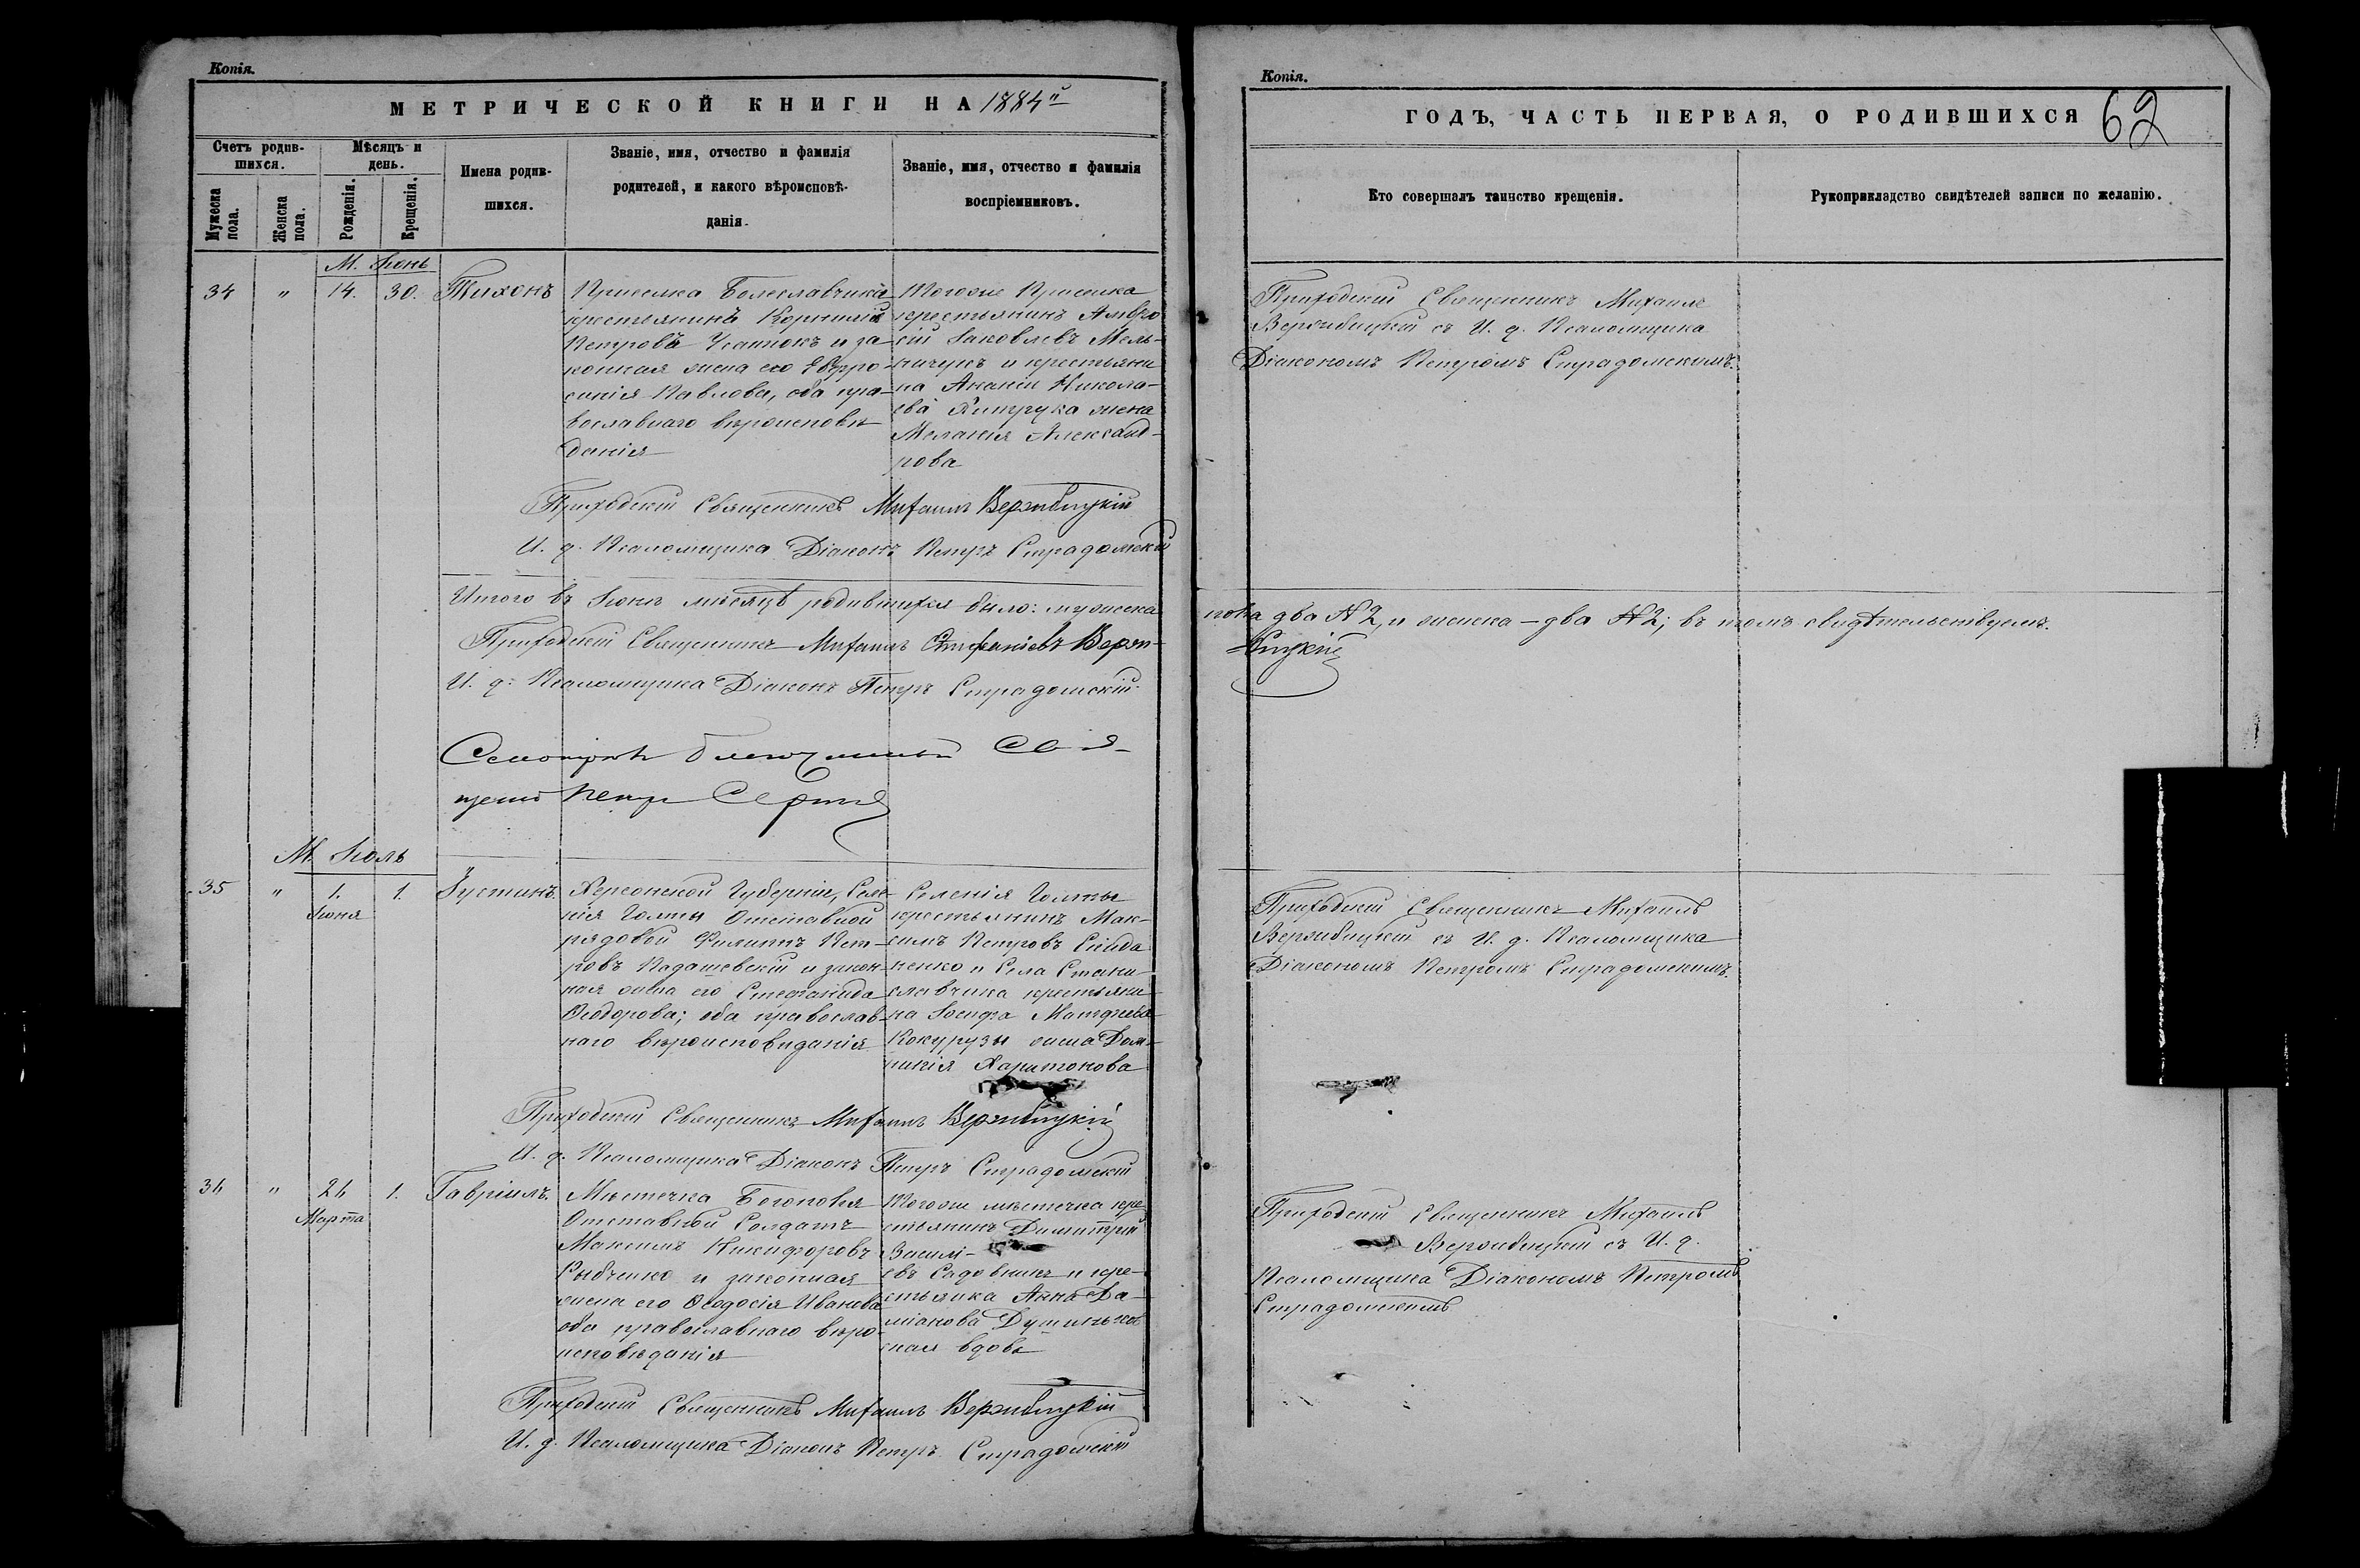 Копія.
МЕТРИЧЕСКОЙ КНИГИ НА 1884й
Счетъ родив-
шихся.
Мѣсяцъ и
день.
Мужеска
пола.
Женска
пола.
Рожденія.
Крещенія.
Имена родив-
шихся.
Званіе, имя, отчество и фамилія
родителей, и какого вѣроисповѣ-
данія.
Званіе, имя, отчество и фамилія
воспріемниковъ.
М. Іюнь
34 " 14. 30. Тихонъ
Приселка Болеславчика
крестьянинъ Корнилій
Петровъ и за
конная жена его Евфро-
синія Павлова, оба пра-
вославнаго вѣроисповѣ
данія
Тогоже Приселка
крестьянинъ Амвро
сій Іаковлевъ Мель-
ничукъ и крестьяни
на Ананіи Никола-
ева жена
Меланія Александ-
рова
Приходскій Священникъ Михаилъ Вержбицкій
И. д. Псаломщика Діаконъ Петръ Страдомскій
Итого въ Іюнѣ мѣсяцѣ родившихся было: мужеска
Приходскій Священникъ Михаилъ Стефаніевъ Верж-
И. д. Псаломщика Діаконъ Петръ Страдомскій
Петръ
М. Іюль
35 " 1. 1. Іустинъ.
Іюня
Херсонской Губерніи, Селе-
нія Голты Отставной
рядовой Филиппъ Пет-
ровъ Кадашевскій и закон-
ная жена его Стефанида
Ѳеодорова; оба православ-
наго вѣроисповѣданія
Селенія Голты
крестьянинъ Мак-
симъ Петровъ
ненко и Села Стани-
славчика крестьяни-
на Іосифа Матфіева
Кокурузы жена Дом-
никія Харитонова
Приходскій Священникъ Михаилъ Вержбицкій
И. д. Псаломщика Діаконъ Петръ Страдомскій
36 " 26 1. Гавріилъ.
Марта
Мѣстечка Богополя
Отставной Солдатъ
Максимъ Никифоровъ
и законная
жена его Ѳеодосія Иванова
оба православнаго вѣро-
исповѣданія
Тогоже мѣстечка кре
стьянинъ Димитрій
Василі-
евъ Садовникъ и кре-
стьянка Анна Да-
міанова
ская вдова
Приходскій Священникъ Михаилъ Вержбицкій
И. д. Псаломщика Діаконъ Петръ Страдомскій
Копія.
ГОДЪ, ЧАСТЬ ПЕРВАЯ, О РОДИВШИХСЯ
62
Кто совершалъ таинство крещенія.
Рукоприкладство свидѣтелей записи по желанію.
Приходскій Священникъ Михаилъ
Вержбицкій съ И. д. Псаломщика
Діакономъ Петромъ Страдомскимъ.
пола два № 2, и женска – два № 2; въ томъ свидѣтельствуемъ.
бицкій
Приходскій Священникъ Михаилъ
Вержбицкій съ И. д. Псаломщика
Діакономъ Петромъ Страдомскимъ.
Приходскій Священникъ Михаилъ
Вержбицкій съ И. д.
Псаломщика Діакономъ Петромъ
Страдомскимъ